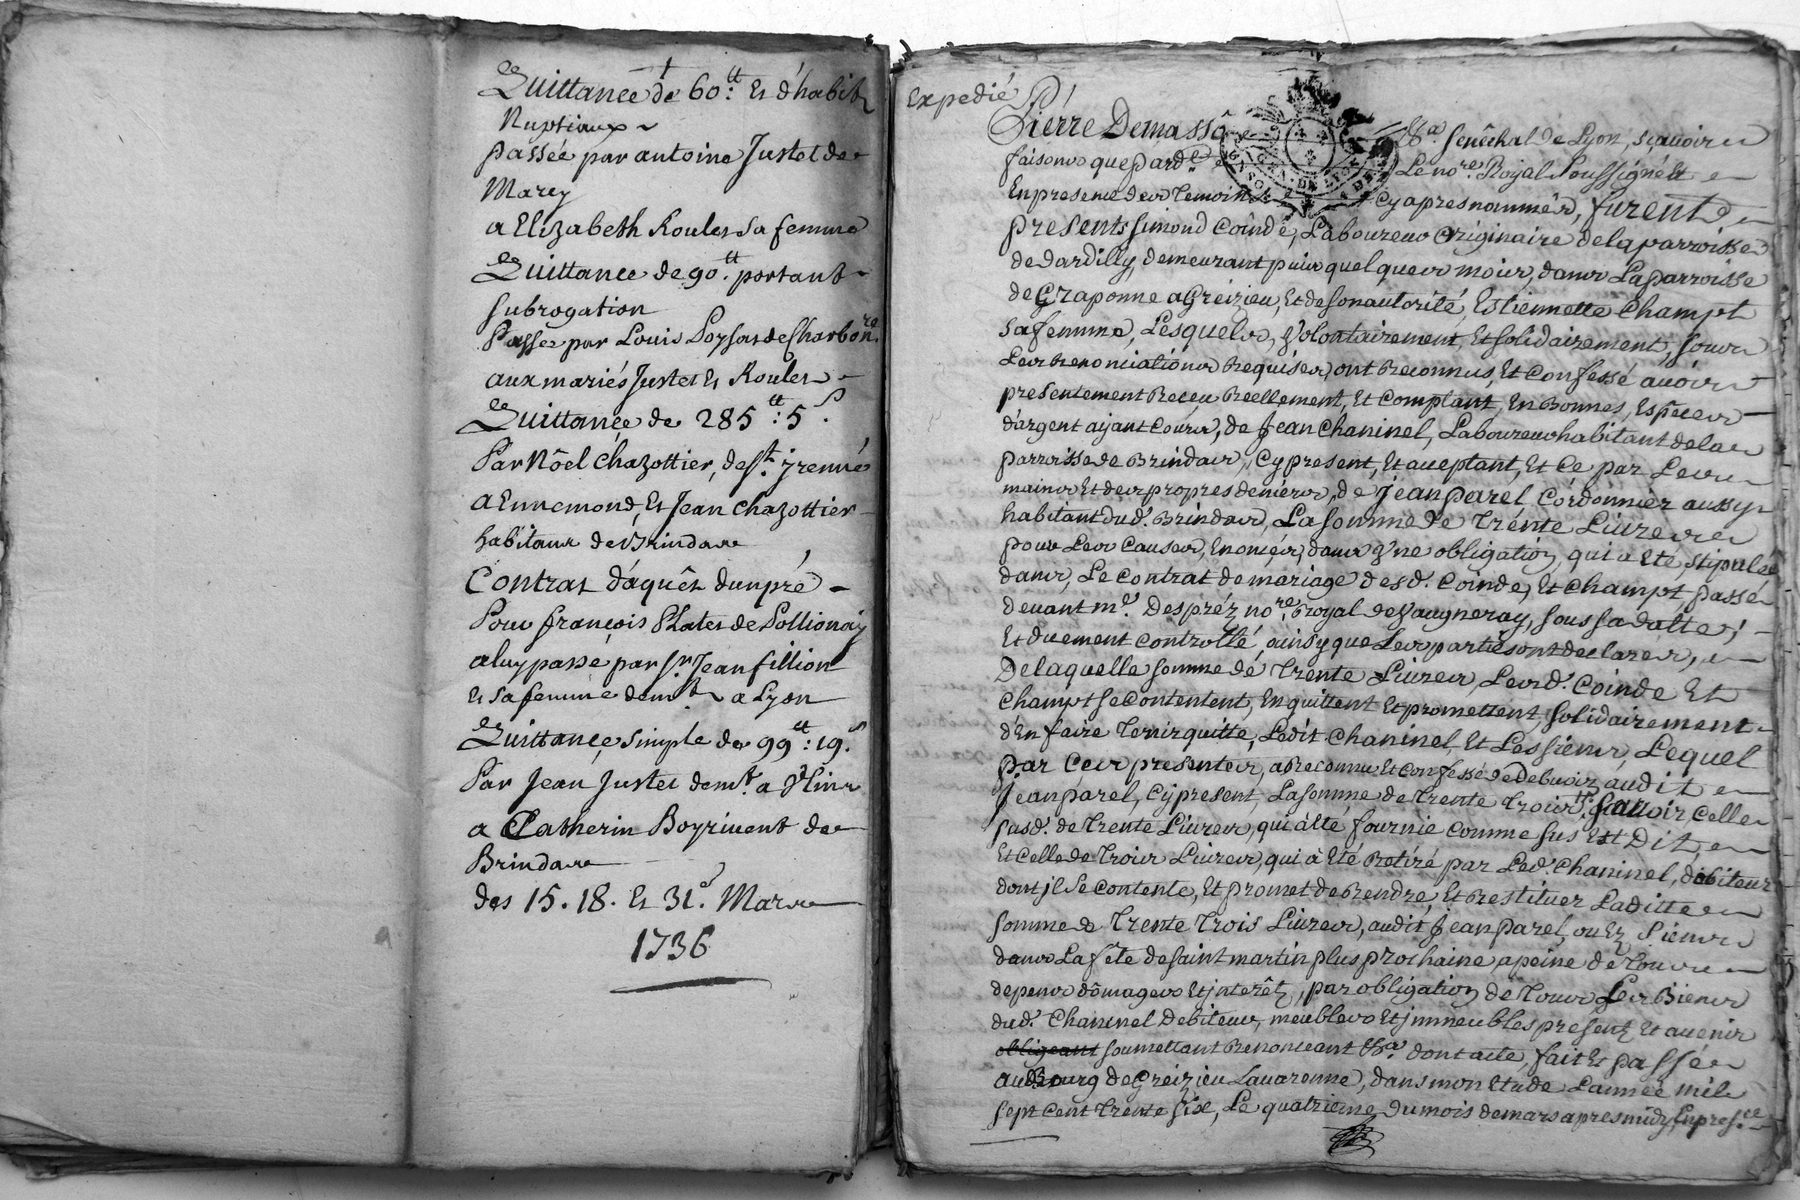 Quittance de 60tt: Et d'habits
Nuptiaux
passée par antoine Justet de
Marcy
a Elizabeth Roules sa femme
Quittance de 90tt. portant
subrogation
Passée par Louis Poysat de Charbonre.
aux mariés Justet Et Roules
Quittance de 285tt: 5s.
Par Nôel Chazottier, de st. jrenné
a Ennemond, Et Jean Chazottier
habitans de Brindas
Contrat d'aquêt dunpré
Pour françois Plates de Pollionay
a luy passé par sr. Jean fillion
Et sa femme demt a Lyon
Quittance simple de 99tt: 19s
Par Jean Justet demt. a
a Catherin Boyrivent de
Brindas
des 15. 18. Et 31e. Mars
1736
Expedié
Pierre Demassô &a. senêchal de Lyon, sçavoir
faisons que pard. Le nore. Royal Soussigné Et
En presence des temoins cy apres nommés, furent
presents simond Coindé, Laboureur Originaire de la parroisse
de dardilly, demeurant puis quelques mois, dans La parroisse
de Graponne a Greizieu, Et de son autorité, Estiennette Champt
sa femme, Lesquels, Volontairement, Et solidairement, sous
Les Renonciations Requises, ont Reconnus, Et Confessé avoir
presentement Receu Réellement, Et Comptant, En Bonnes, Espèces
d'argent ayant Cours, de Jean Chaninel, Laboureur habitant de la
parroisse de Brindas, Cy present, Et aceptant, Et Ce par Les
mains Et des propres deniers, de Jean parel Cordonnier aussy
habitant dud. Brindas, La somme de trente Livres
pour Les Causes, Enoncées, dans Vne obligation, qui a Eté, stipulée
dans, Le Contrat de mariage desd. Coinde, Et Champt, passé
devant me. Despréz nore. Royal de Vaugneray, sous sa datte,
Et duement Controllé, ainsy que Les partie sont declarer,
De laquelle somme de trente Livres, Lesd. Coinde Et
Champt se Contentent, En quittent Et promettent, solidairement
d'En faire tenir quitte, Ledit Chaninel, Et Les siens, Lequel
par Ces presentes, a Reconnu Et Confessé de Debvoir audit
Jean parel, Cy present, La somme de trente troistt: sçavoir Celle
susd. de trente Livres, qui a Eté fournie comme sus Est Dit,
Et Celle de trois Livres, qui à Eté Retiré par Led. Chaninel, debiteur
dont jl se contente, Et promet de Rendre, Et Restituer Laditte
somme de trente trois Livres, audit Jean parel, ou Ez siens
dans La fête de saint martin plus prochaine, a peine de tous
depens dômages Et jnterêtz, par obligation de tous Les Biens
dud. Chaninel Debiteur, meubles Et jmmeubles presentz Et avenir
obligeant soumettant Renonceant &a. dont acte, fait Et passé
au Bourg de Greizieu Lavarenne, dans mon Etude L'année mil
sept Cent trente six, Le quatrieme, du mois de mars apres midy, En presce.